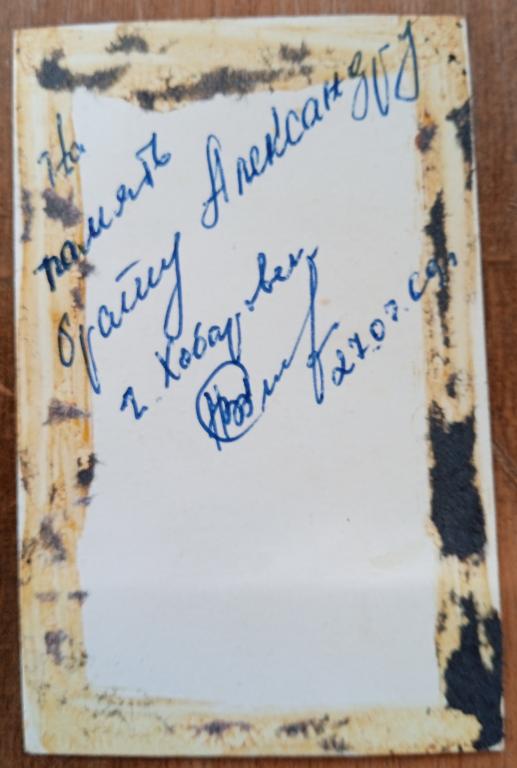 На
память
брату Александру
г. Хабаровск
27.07.